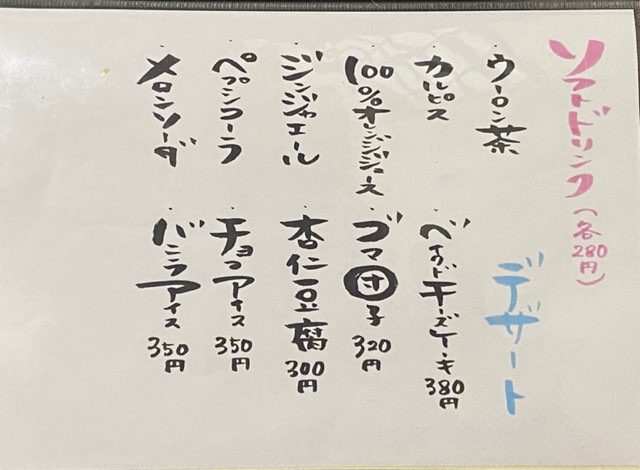 ソフトドリンク(各280円)
・ウーロン茶
・カルピス
・100%オレンジジュース
・ジンジャエール
・ペプシコーラ
・メロンソーダ
デザート
・ベイクドチーズケーキ 380円
・ゴマ団子 320円
・杏仁豆腐 300円
・チョコアイス 350円
・バニラアイス 350円